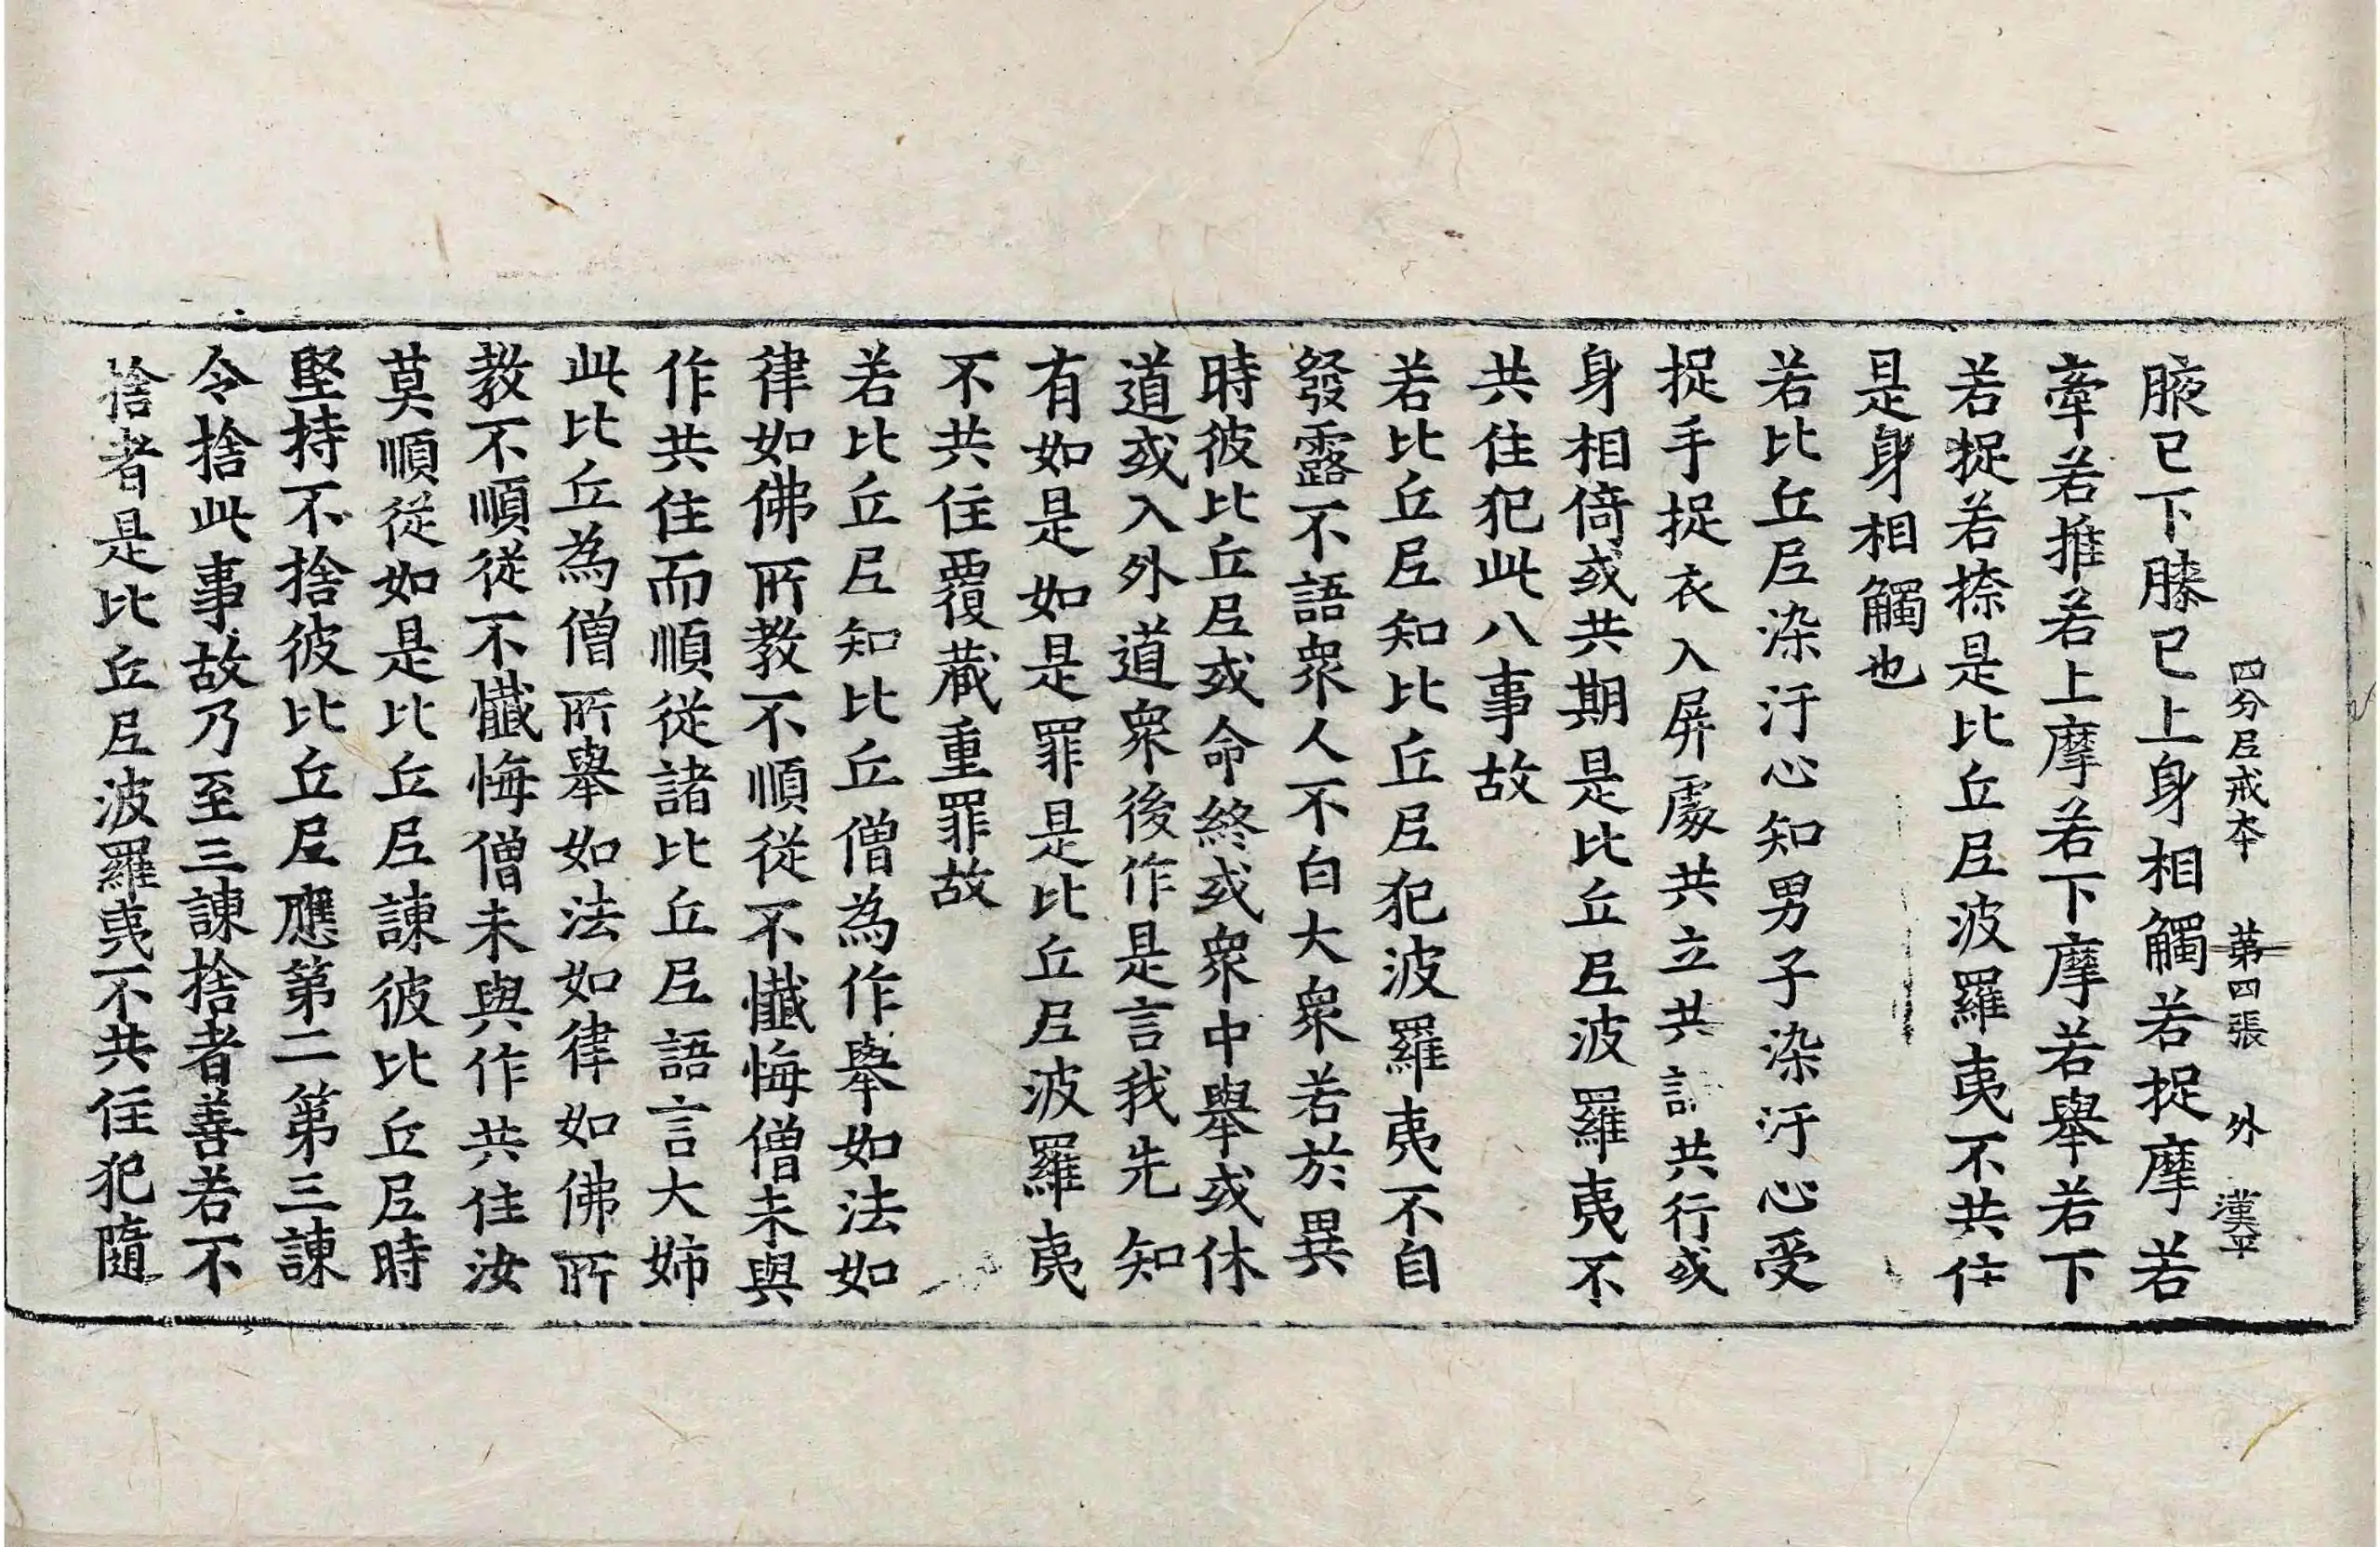 四分尼戒本 第四張 外 漢平
腋已下膝已上身相觸若捉摩若
牽若推若上摩若下摩若舉若下
若捉若捺是比丘尼波羅夷不共住
是身相觸也
若比丘尼染汙心知男子染汙心受
捉手捉衣入屏處共立共 共行或
身相倚或共期是比丘尼波羅夷不
共住犯此八事故
若比丘尼知比丘尼犯波羅夷不自
發露不語眾人不白大眾若於異
時彼比丘尼或命終或眾中舉或休
道或入外道眾後作是言我先知
有如是如是罪是比丘尼波羅夷
不共住覆藏重罪故
若比丘尼知比丘僧為作舉如法如
律如佛所教不順從不懺悔僧未與
作共住而順從諸比丘尼語言大姊
此比丘為僧所舉如法如律如佛所
教不順從不懺悔僧未與作共住汝
莫順從如是比丘尼諫彼比丘尼時
堅持不捨彼比丘尼應第二第三諫
令捨此事故乃至三諫捨者善若不
捨者是比丘尼波羅夷不共住犯隨